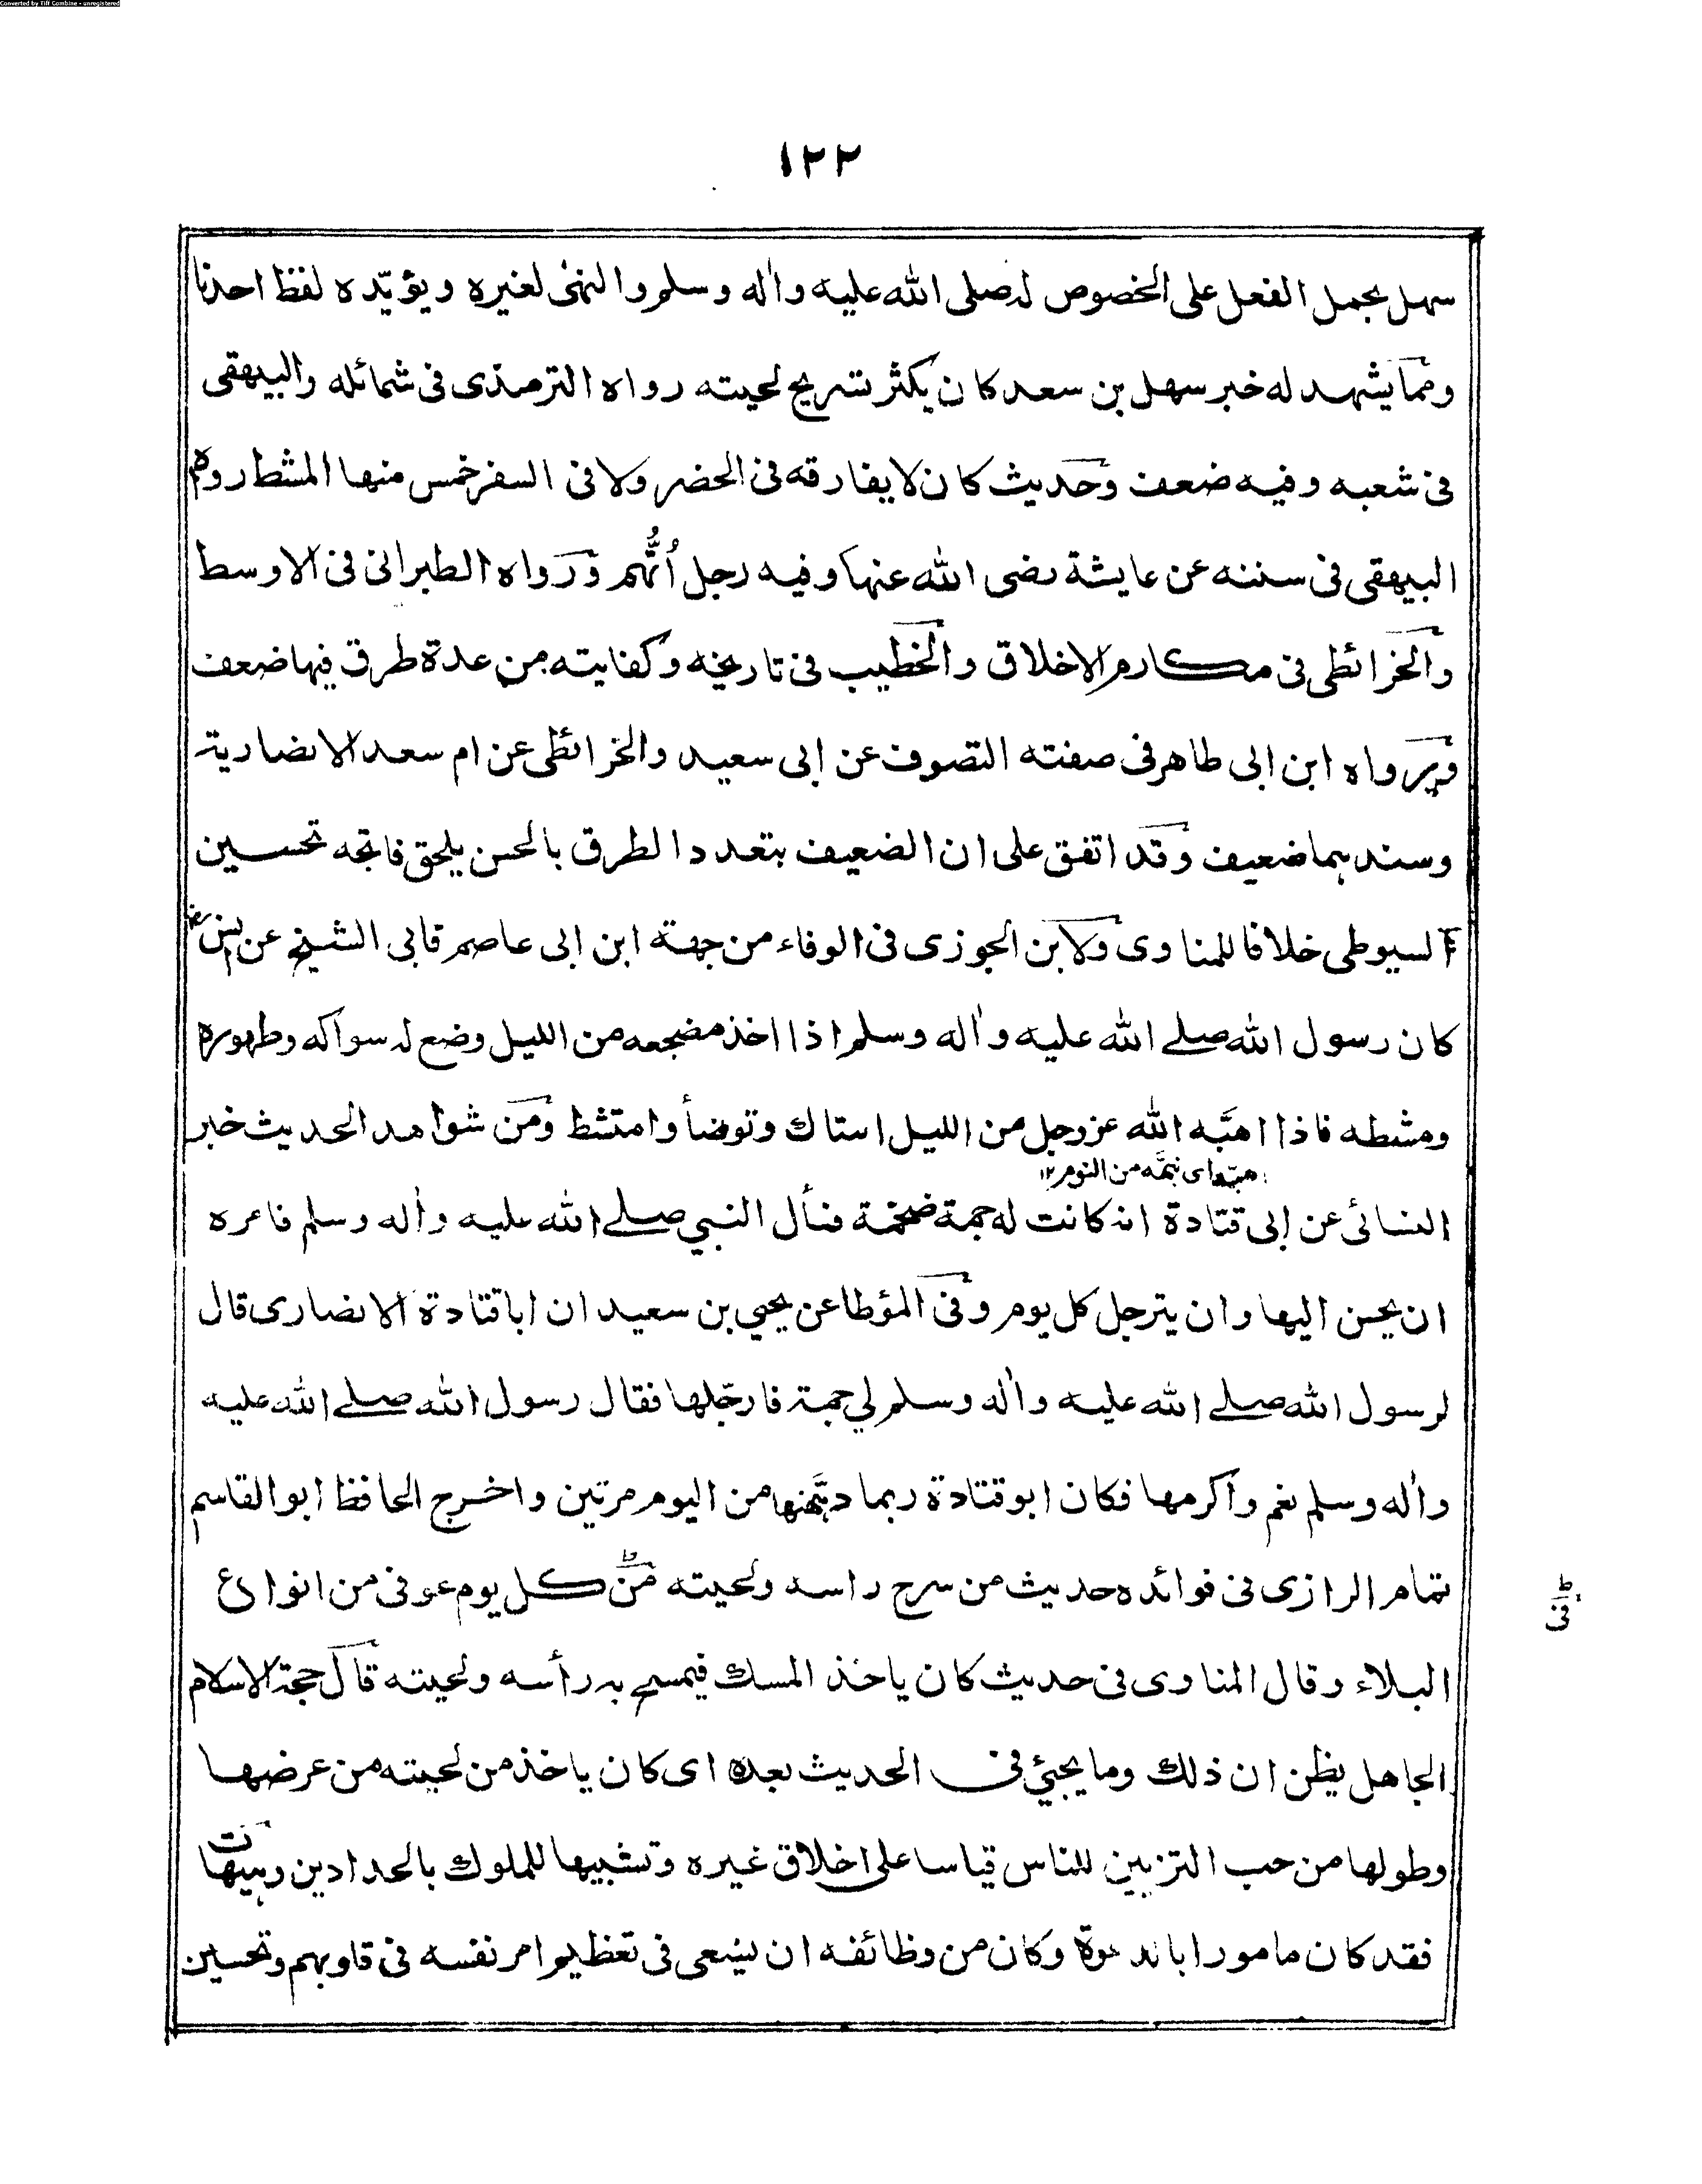 Converted by Tiff Combine - unregistered
١٢٢
سهل بحمل الفعل على الخصوص له صلى الله عليه واٰله وسلم والنهى لغيره ويؤيّده لفظ احدنا
وممّا يشهد له خبر سهل بن سعد كان يكثر تسريح لحيته رواه الترمذى فى شمائله والبيهقى
فى شعبه وفيه ضعف وحديث كان لا يفارقه فى الحضر ولا فى السفر خمس منها المشط رواه
البيهقى فى سننه عن عايشة رضى الله عنها وفيه رجل اُتُّهم ورواه الطبرانى فى الاوسط
والخرائطى فى مكارم الاخلاق والخطيب فى تاريخه وكفايته من عدة طرق فيها ضعف
ورواه ابن ابى طاهر فى صفته التصوف عن ابى سعيد والخرائطى عن ام سعد الانصارية
وسندهما ضعيف وقد اتفق على ان الضعيف بتعدد الطرق بالحسن يلحق فاتجه تحسين
السيوطى خلافا للمناوى ولابن الجوزى فى الوفاء من جهة ابن ابى عاصم قابى الشيخ عن انس رض
كان رسول الله صلے الله عليه واٰله وسلم اذا اخذ مضجعه من الليل وضع له سواكه وطهوره
ومشطه فاذا اهبّه الله عزوجل من الليل استاك وتوضأ وامتشط ومن شواهد الحديث خبر
هبّه اى نبّهه من النوم ١٢
النسائى عن ابى قتادة انه كانت له جمة ضخمة فسأل النبي صلے الله عليه واٰله وسلم فامره
ان يحسن اليها وان يترجل كل يوم وفى المؤطا عن يحيي بن سعيد ان اباقتادة الانصارى قال
لرسول الله صلے الله عليه واٰله وسلم لي جمة فارجّلها فقال رسول الله صلے الله عليه
واٰله وسلم نعم واكرمها فكان ابوقتادة ربما دهّنها من اليوم مرتين واخرج الحافظ ابوالقاسم
تمام الرازى فى فوائده حديث من سرح راسه ولحيته من كل يوم عوفى من انواع
فى
البلاء وقال المناوى فى حديث كان ياخذ المسك فيمسح به رأسه ولحيته قال حجة الاسلام
الجاهل يظن ان ذلك وما يجيئ فى الحديث بعده اى كان ياخذ من لحيته من عرضها
وطولها من حب التزيين للناس قياسا على اخلاق غيره وتشبيها للملوك بالحدادين وهيهات
فقد كان مامورا بالدعوة وكان من وظائفه ان يسعى فى تعظيم امر نفسه فى قلوبهم وتحسين